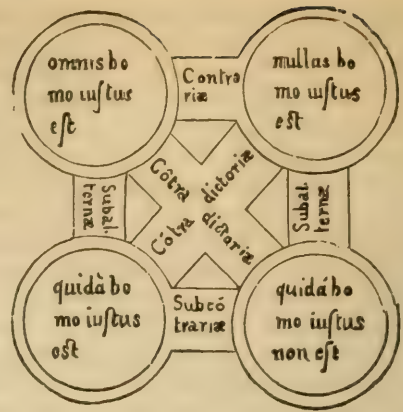 omnis ho
mo iuſtus
eſt
Contra
riæ
nullas ho
mo iuſtus
eſt
Subal-
ternæ
Cõtra dictoriæ
Cõtra dictoriæ
Subal-
ternæ
quidã ho
mo iuſtus
oſt
Subcõ
trariæ
quidá ho
mo iuſtus
non eſt